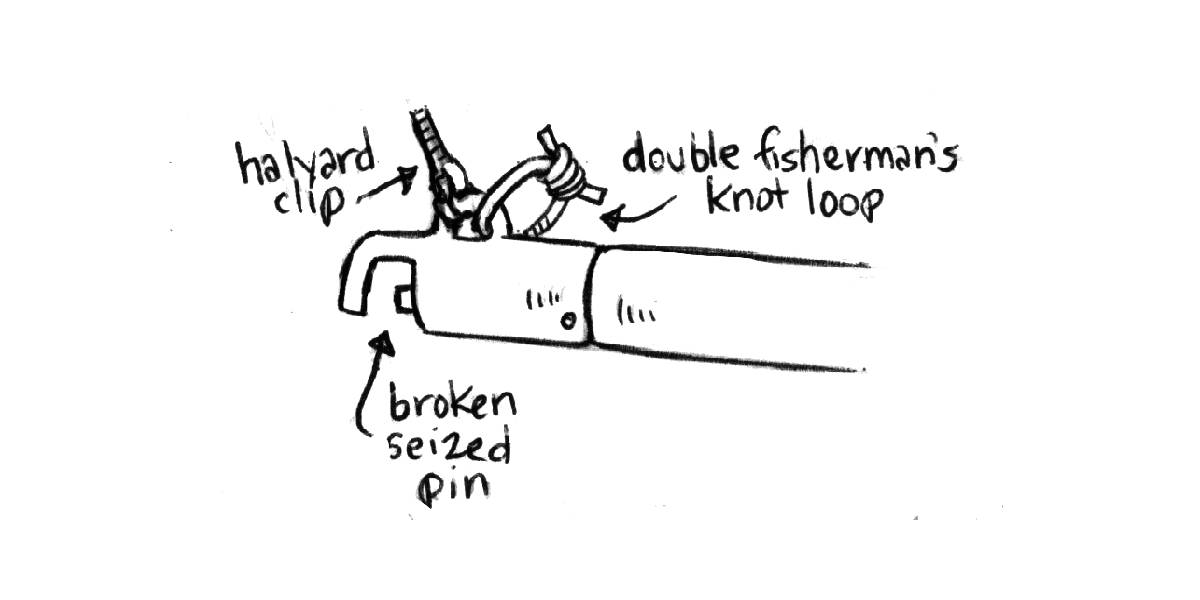 halyard
clip
double fisherman's
knot loop
broken
seized
pin